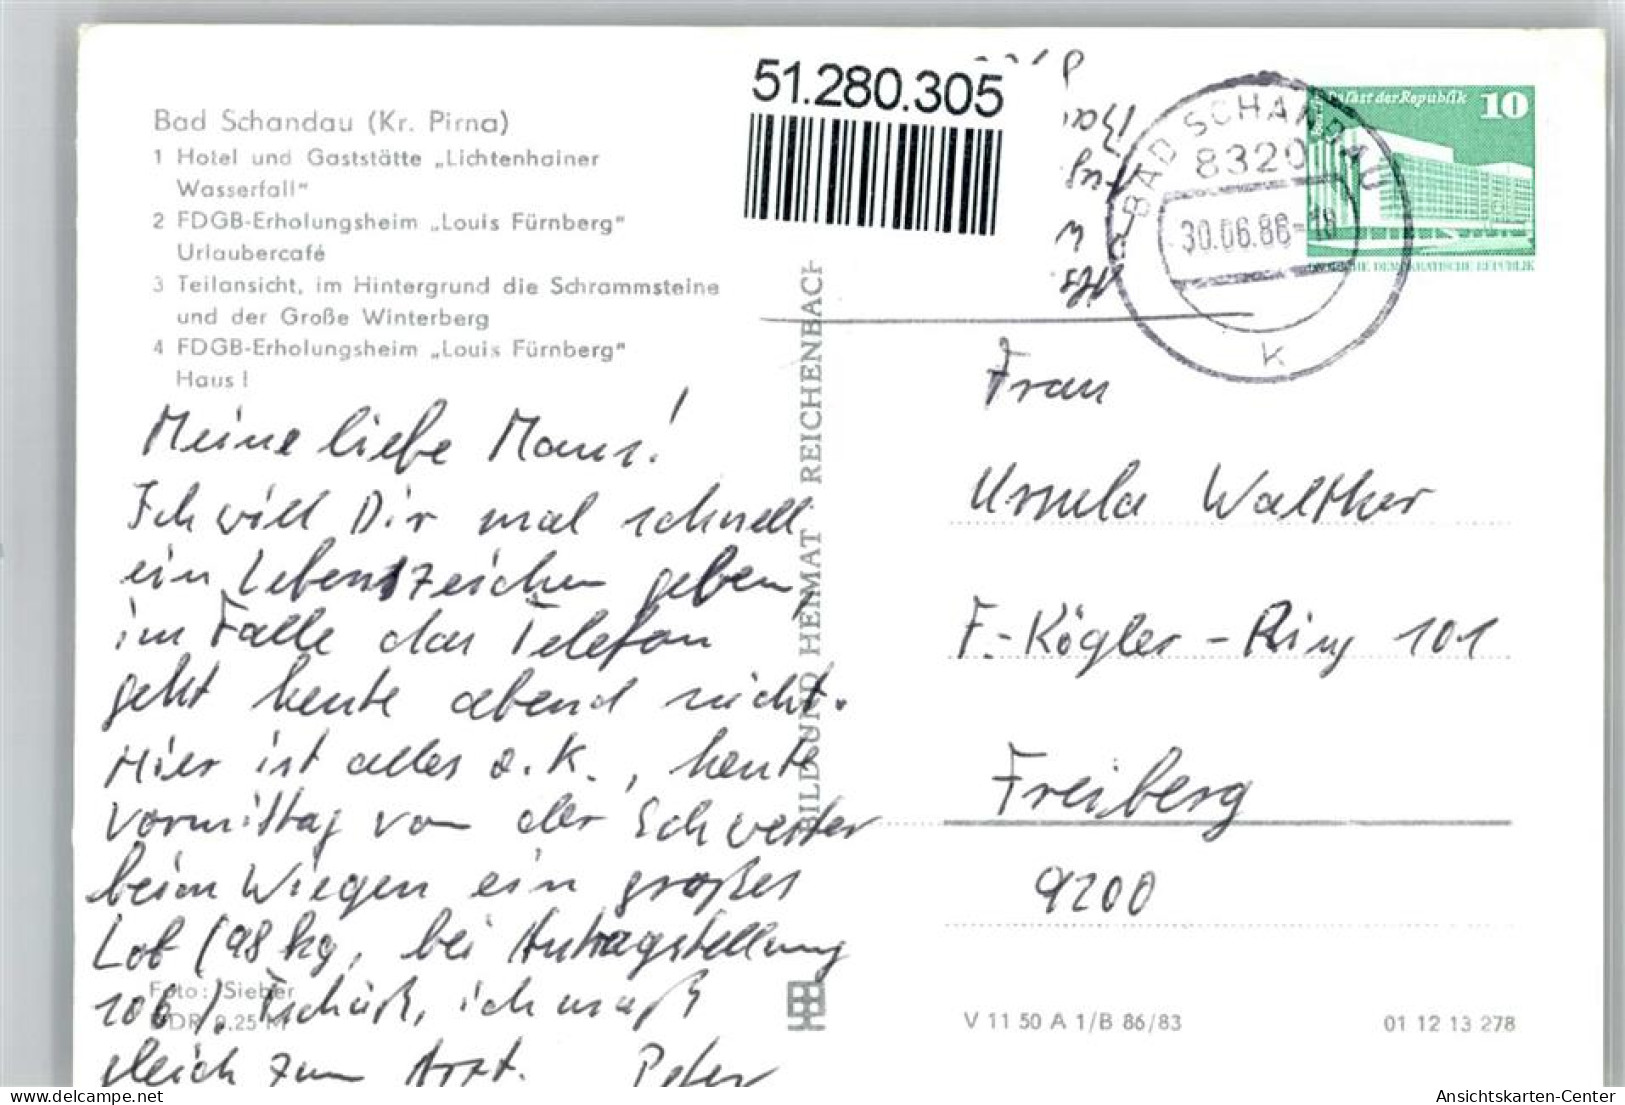 Bad Schandau (Kr. Pirna)
1 Hotel und Gaststätte „Lichtenhainer
Wasserfall"
2 FDGB-Erholungsheim „Louis Fürnberg"
Urlaubercafé
3 Teilansicht, im Hintergrund die Schrammsteine
und der Große Winterberg
4 FDGB-Erholungsheim „Louis Fürnberg"
Haus I
Meine liebe Maus!
Ich will Dir mal schnell
ein Lebenszeichen geben,
im Falle das Telefon
geht heute abend nicht.
Hier ist alles o.k., heute
Vormittag von der Schwester
beim Wiegen ein großes
Lob (98 kg, bei Antragstellung
106). Tschüß, ich muß
gleich zum Arzt. Peter
Foto: Sieber
DDR 0.25 M
BILD UND HEIMAT REICHENBACH
51.280.305
BAD SCHANDAU
8320
30.06.86-18
k
Palast der Republik 10
DEUTSCHE DEMOKRATISCHE REPUBLIK
Frau
Ursula Walther
F.-Kögler-Ring 101
Freiberg
9200
V 11 50 A 1/B 86/83
01 12 13 278
www.delcampe.net
Ansichtskarten-Center